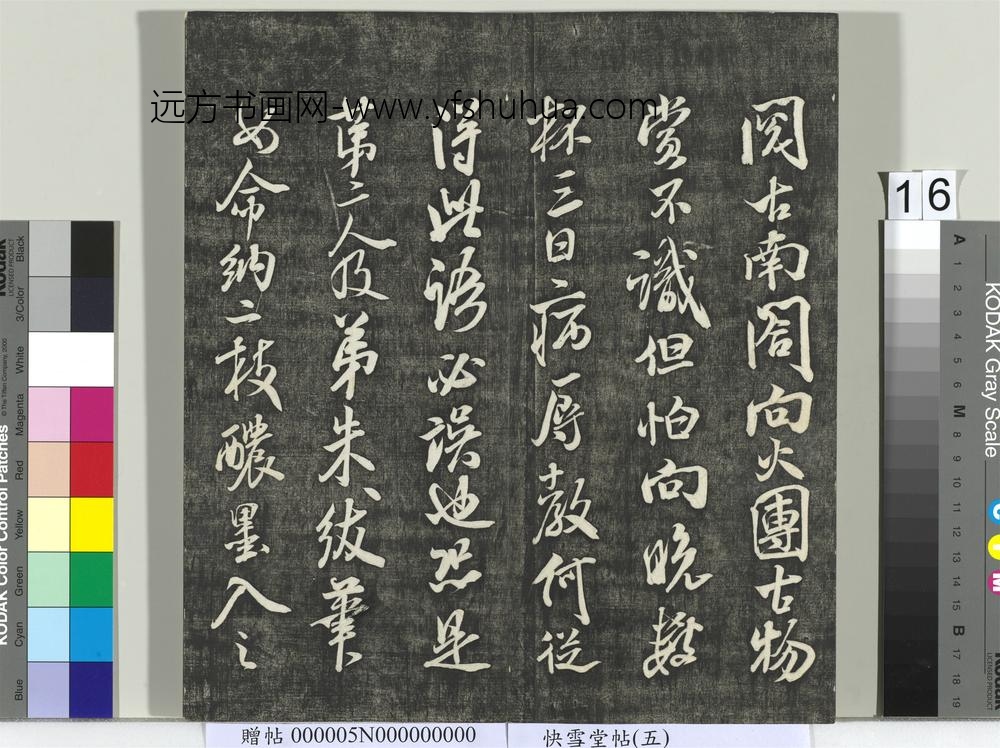 远方书画网-www.yfshuhua.com
閱古南閣向火團古物
賞不識但怕向晚數
杯三日病辱教何從
得此語必誤也恐是
第二人及第朱紱筆
如命納二枝醲墨入之
16
KODAK Gray Scale
A 1 2 3 4 5 6 M 8 9 10 11 12 13 14 15 B 17 18 19
C Y M
Kodak
LICENSED PRODUCT
KODAK Color Control Patches
© The Tiffen Company, 2000
Blue Cyan Green Yellow Red Magenta White 3/Color Black
贈帖 000005N000000000
快雪堂帖(五)